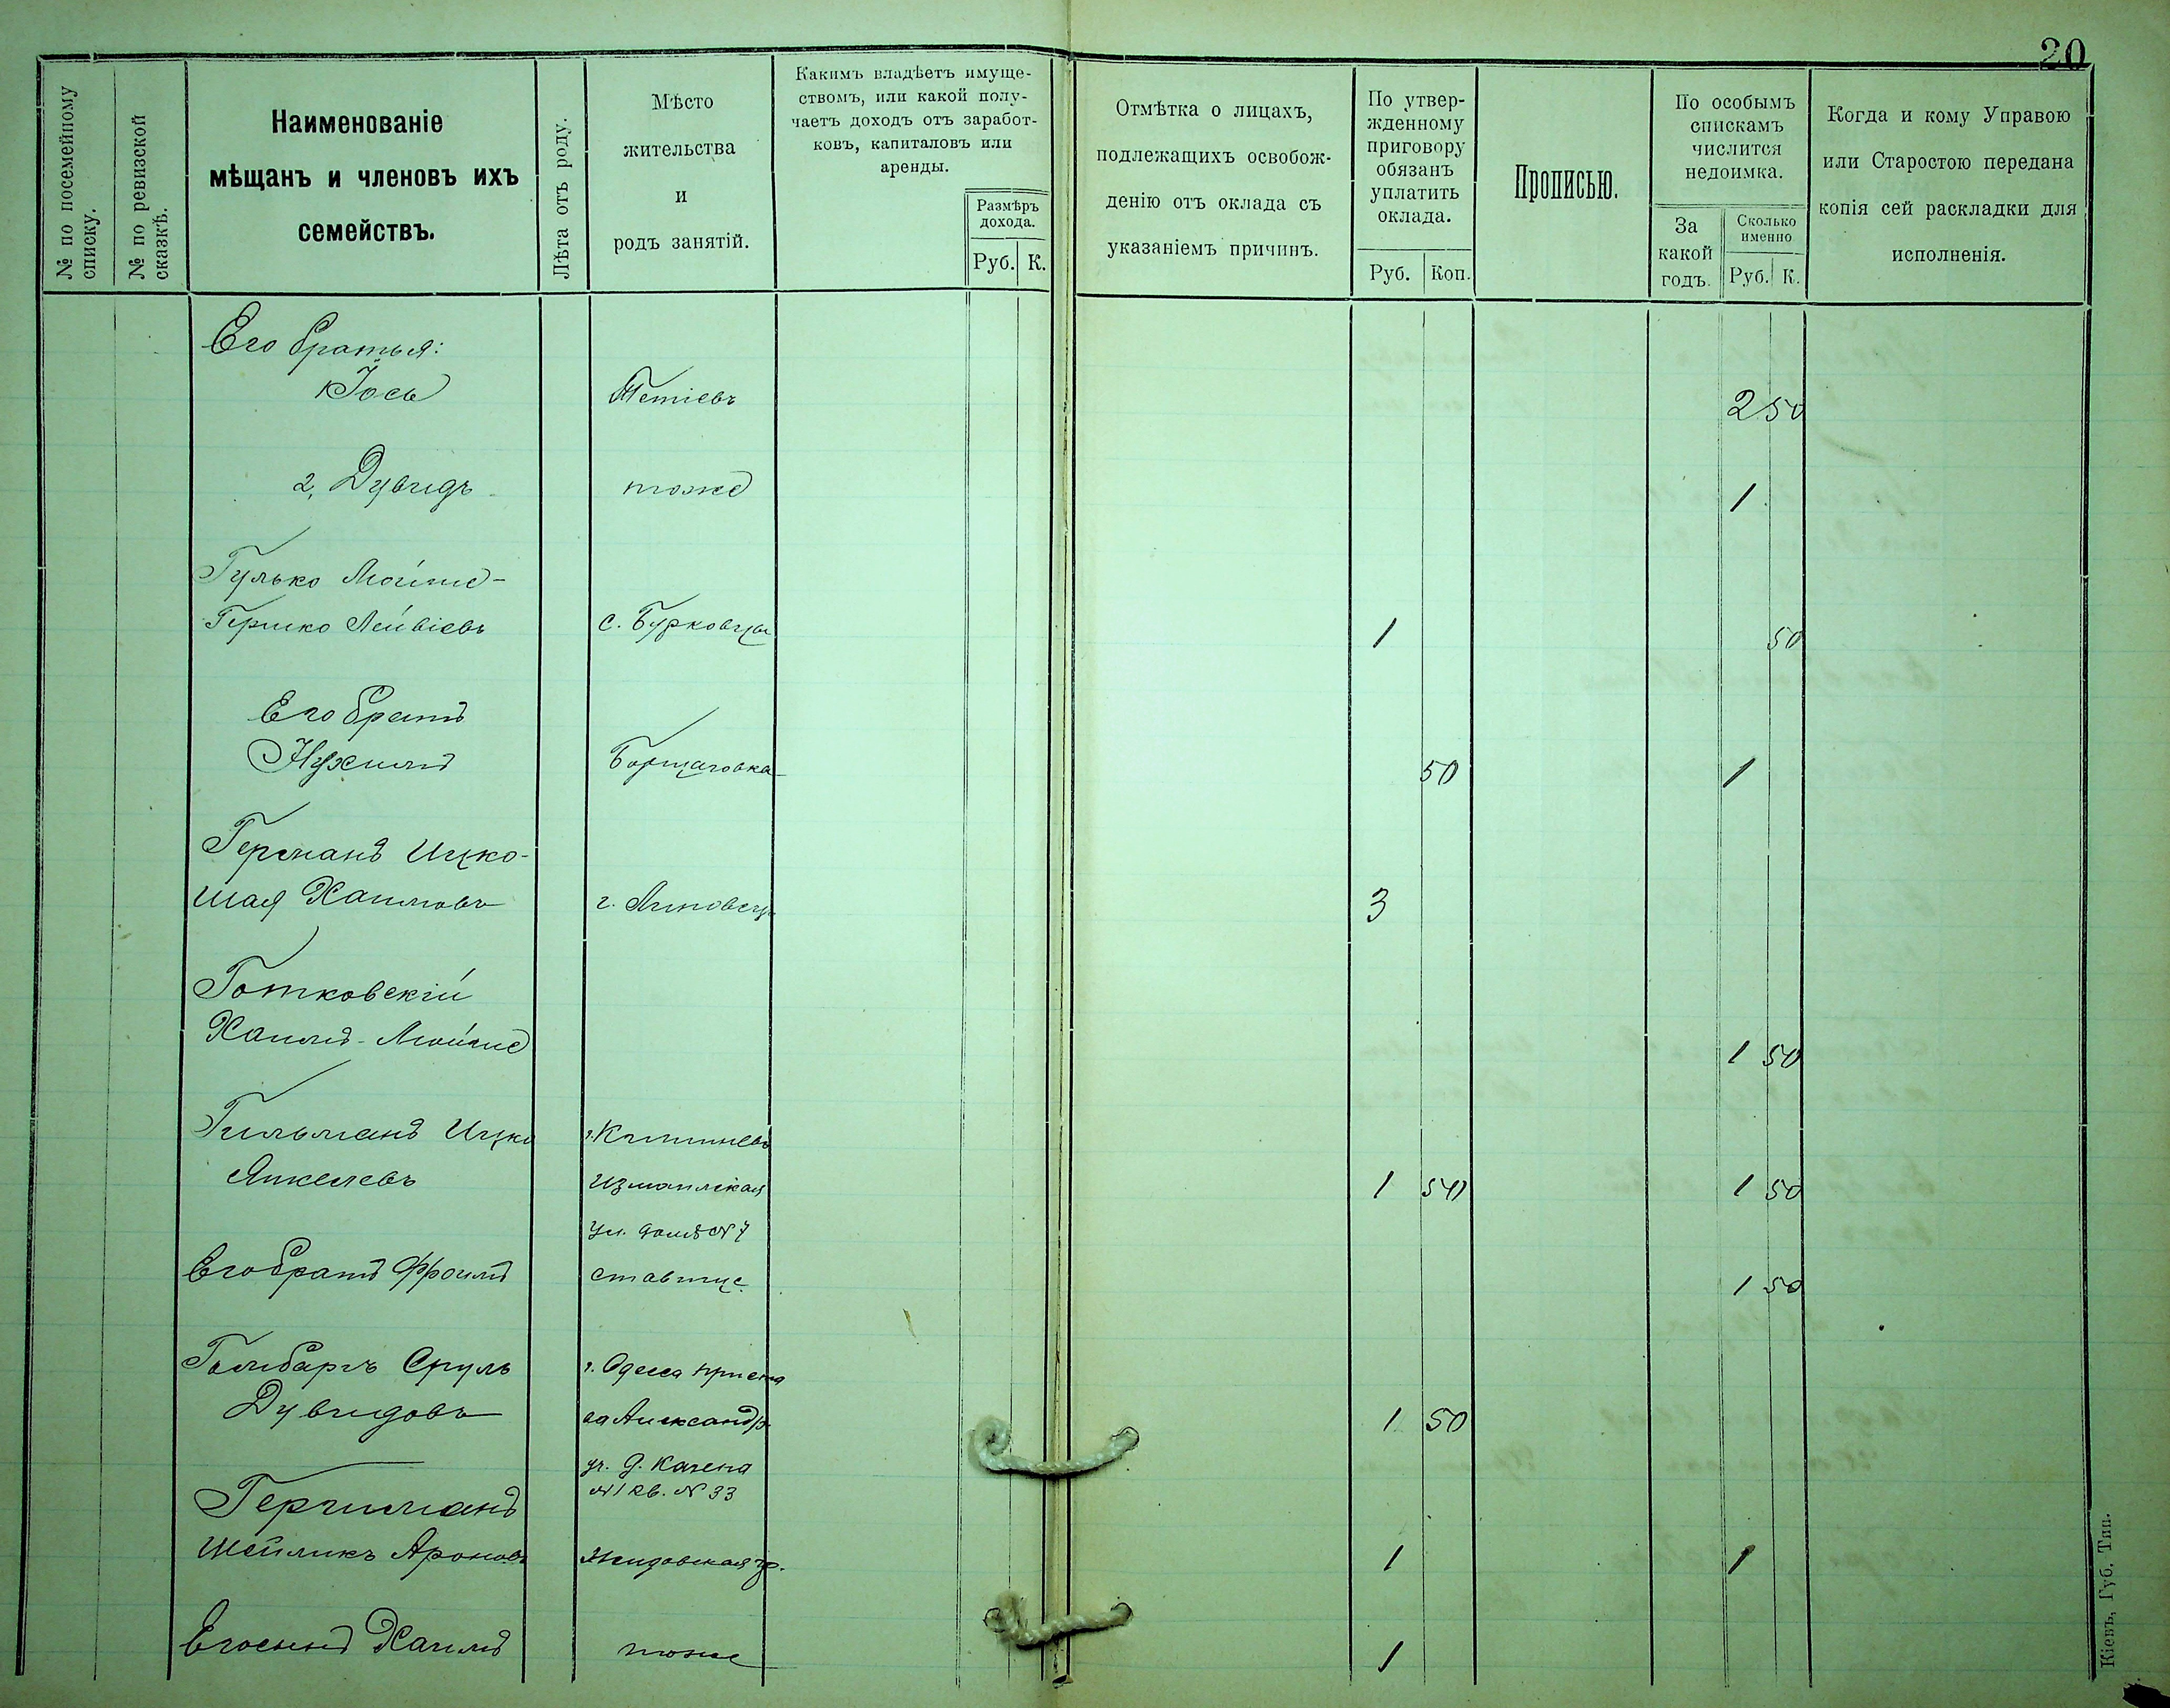 20
№ по посемейному
списку.
№ по ревизской
сказкѣ.
Наименованіе
мѣщанъ и членовъ ихъ
семействъ.
Лѣта отъ роду.
Мѣсто
жительства
и
родъ занятій.
Какимъ владѣетъ имуще-
ствомъ, или какой полу-
чаетъ доходъ отъ заработ-
ковъ, капиталовъ или
аренды.
Размѣръ
дохода.
Руб. К.
Отмѣтка о лицахъ,
подлежащихъ освобож-
денію отъ оклада съ
указаніемъ причинъ.
По утвер-
жденному
приговору
обязанъ
уплатить
оклада.
Руб. Коп.
Прописью.
По особымъ
спискамъ
числится
недоимка.
За
какой
годъ.
Сколько
именно
Руб. К.
Когда и кому Управою
или Старостою передана
копія сей раскладки для
исполненія.
Его братья:
Іось Тетіевъ 2 50
2, Дувидъ тоже 1
Гулько Мойше-
Гершко Лейвіевъ с. Бурковцы 1 50
Его братъ
Нухимъ Борщаговка 50 1
Германъ Ицко-
Шая Хаимовъ г. Липовецъ 3
Готковскій
Хаимъ-Мойше 1 50
Гильманъ Ицко г. Кишиневъ
Янкелевъ Измаилская 1 50 1 50
Ул. домъ № 7
Его братъ Фроимъ Ставище 1 50
Гольбаргъ Сруль г. Одесса
Дувидовъ Александр. 1 50
№ 1 кв. № 33
Герчиманъ
Шейликъ Ароновъ Жидовская гр. 1 1
Его сынъ Хаимъ тоже 1
Кіевъ, Губ. Тип.